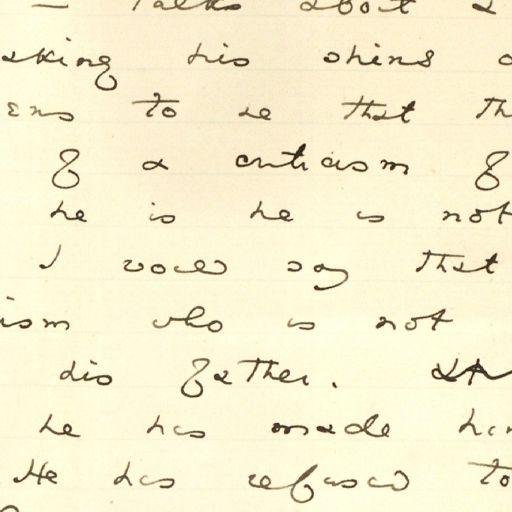 — talks about a
asking his shins
ens to be that th
of a criticism of
he is he is not
I would say that
ism who is not
his father.
he has made him
He has refused to